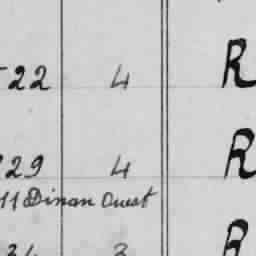 22 4 R
29 4 R
11 Dinan Ouest
34 3 R